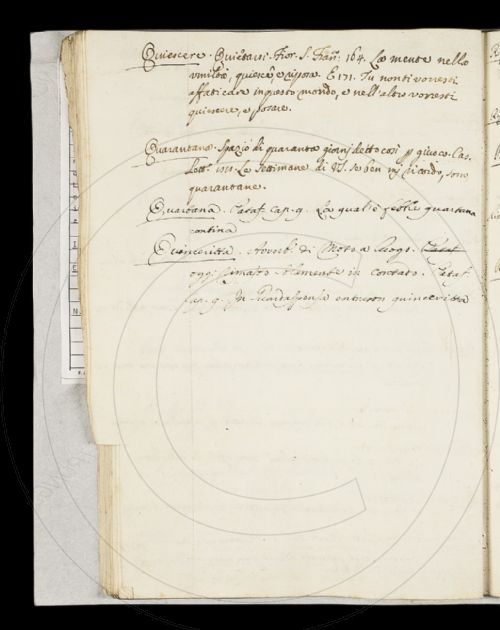 Quiescere. Quietarsi. Fior. S. Fran: 164. La mente nello
umiltà, quiesca, e riposa. E 171. Tu non ti vorresti
affaticare in questo mondo, e nell'altro vorresti
quiescere, e posare.
Quarantana. Spazio di quaranta giorni detto così p giuoco. Cas.
Lett. Le Settimane di VS. se ben mi ricordo, sono
quarantane.
Quartana. Pataf. cap. 9. La qual è febbre quartana
contina
Quinciritta. Avverb. di Moto a luogo. Pataf.
oggi rimaso solamente in contado. Pataf.
cap. 9. In entraron quinciritta